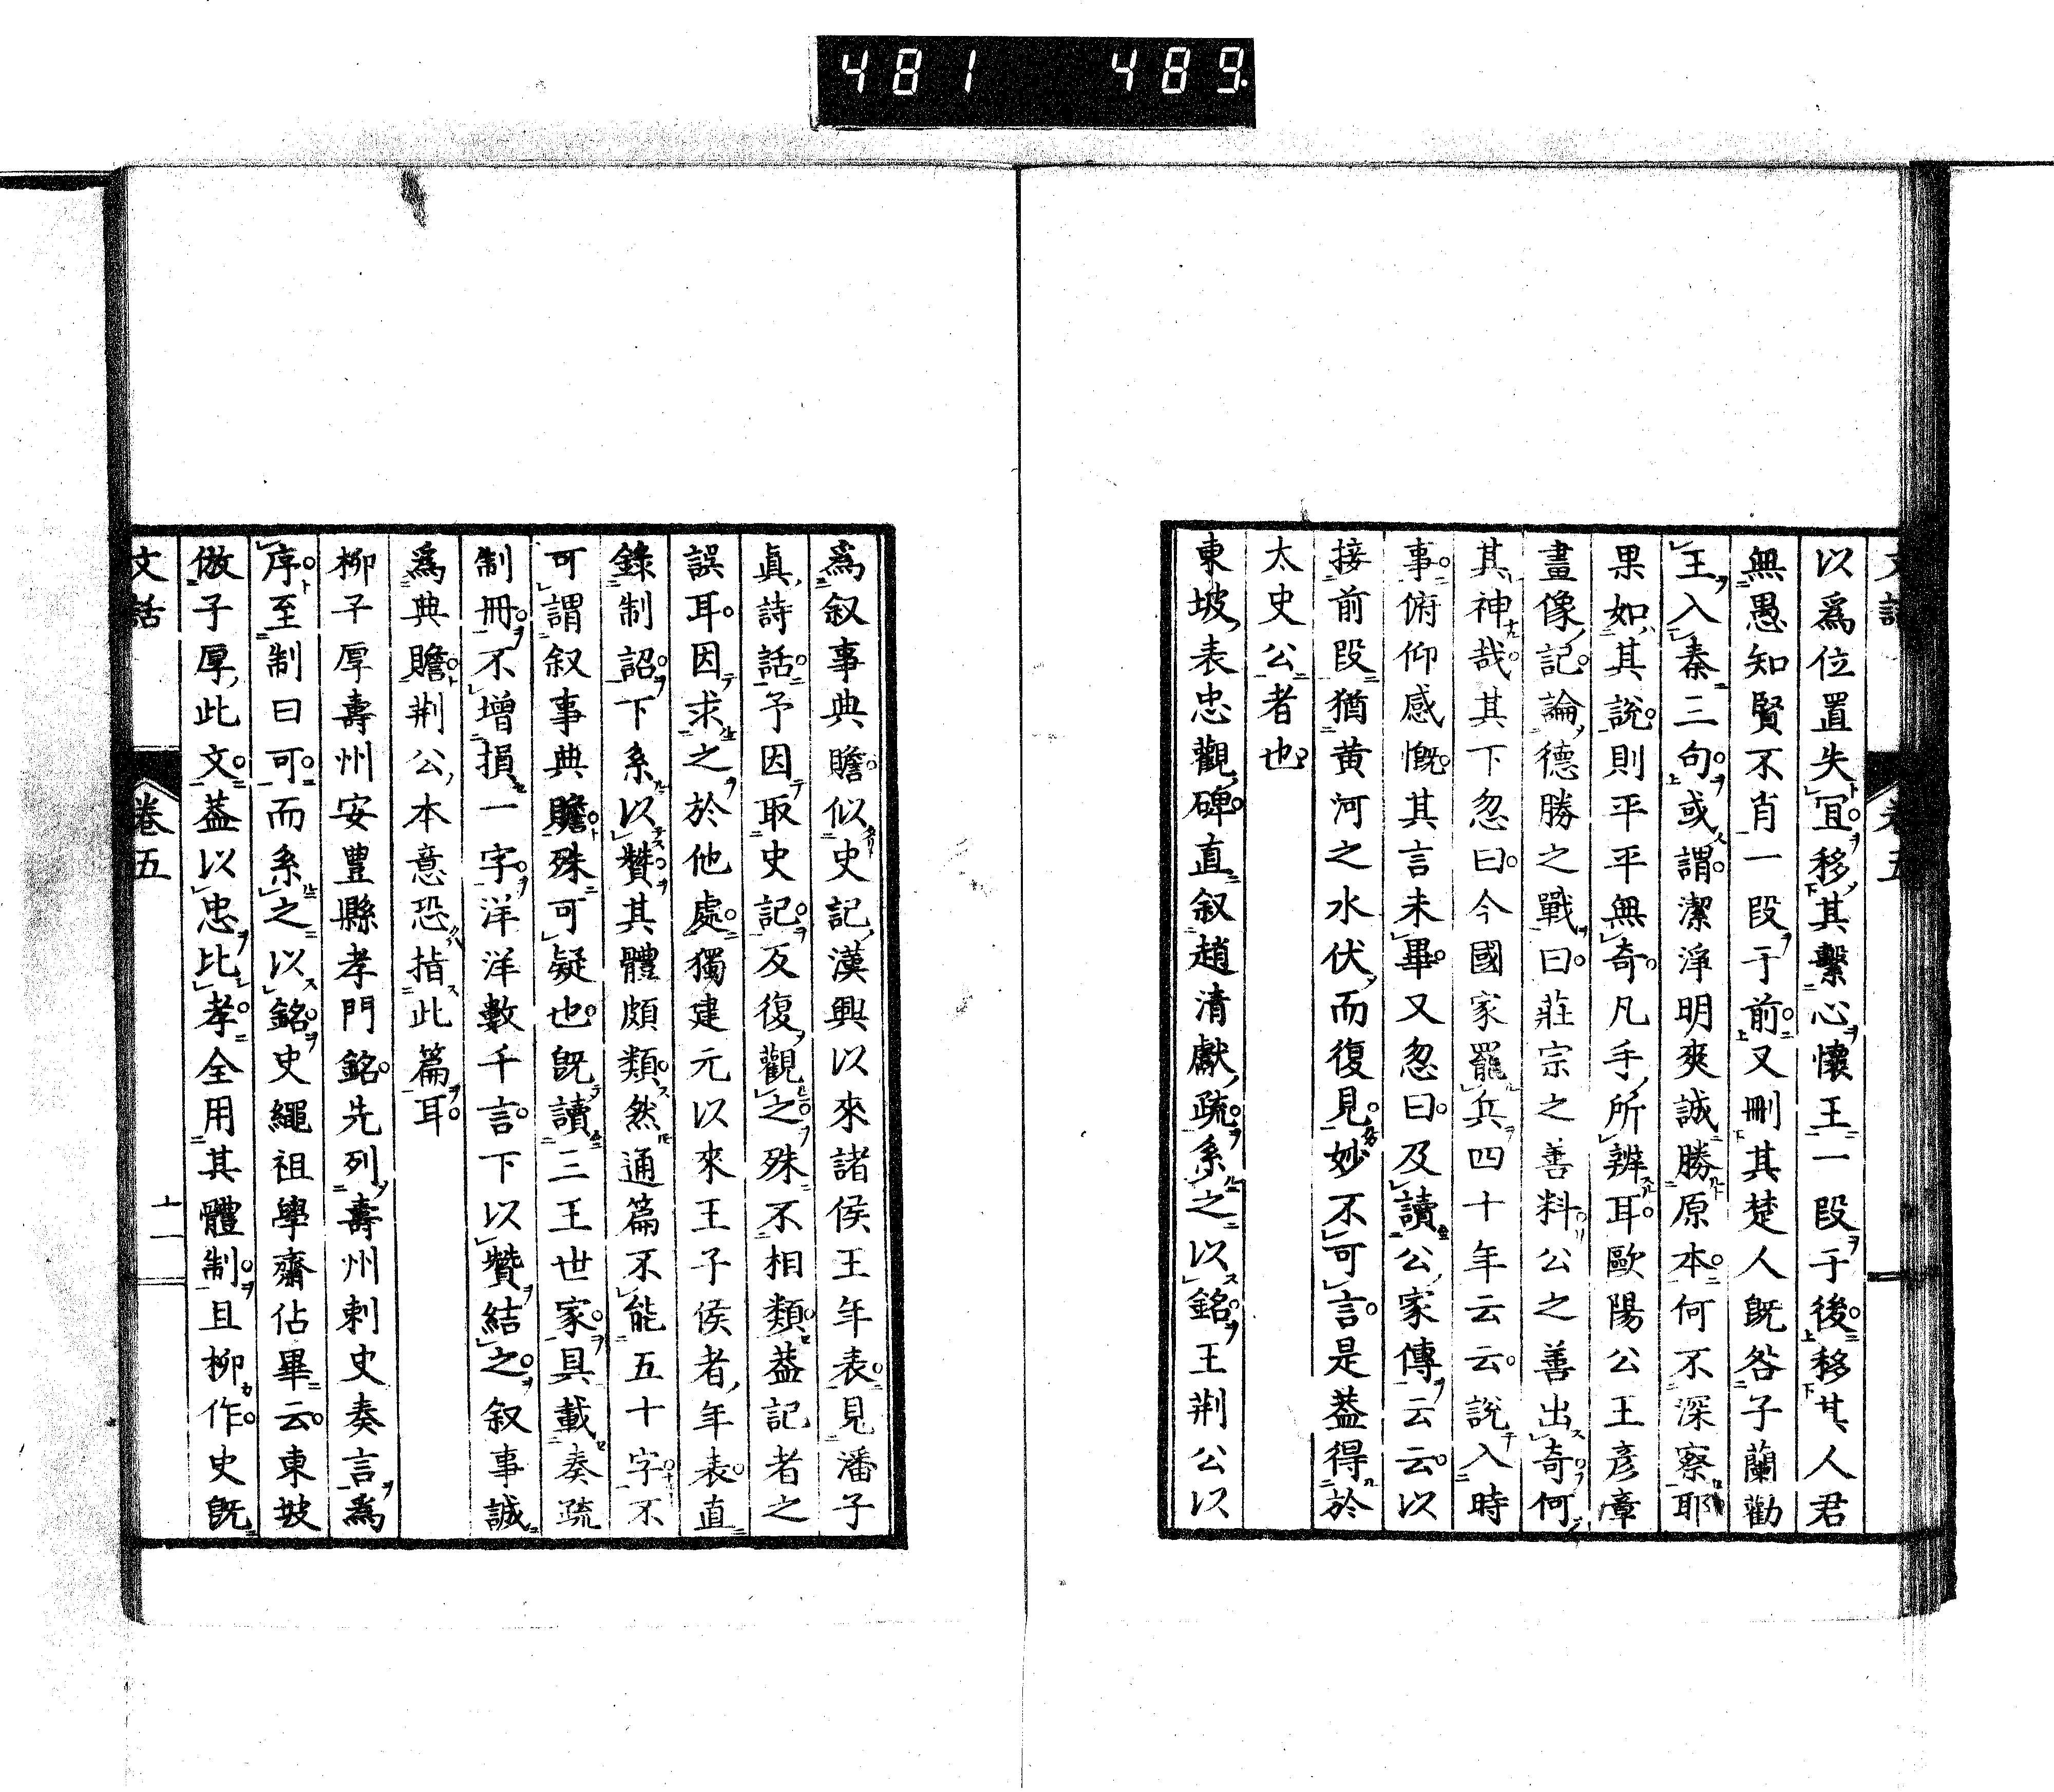 481 489
文話 卷五
以爲位置失宜移其繫心懷王一段于後移其人君
無愚知賢不肖一段于前又刪其楚人既咎子蘭勸
王入秦三句或謂潔淨明爽誠勝原本何不深察耶
果如其說則平平無奇凡手所辨耳歐陽公王彥章
畫像記論德勝之戰曰莊宗之善料公之善出奇何
其神哉其下忽曰今國家罷兵四十年云云說入時
事俯仰感慨其言未畢又忽曰及讀公家傳云云以
接前段猶黃河之水伏而復見妙不可言是葢得於
太史公者也
東坡表忠觀碑直叙趙清獻疏系之以銘王荆公以
爲叙事典贍似史記漢興以來諸侯王年表見潘子
眞詩話予因取史記反復觀之殊不相類葢記者之
誤耳因求之於他處獨建元以來王子侯者年表直
錄制詔下系以贊其體頗類然通篇不能五十字不
可謂叙事典贍殊可疑也既讀三王世家具載奏疏
制冊不增損一字洋洋數千言下以贊結之叙事誠
爲典贍荆公本意恐指此篇耳
柳子厚壽州安豊縣孝門銘先列壽州刺史奏言爲
序至制曰可而系之以銘史繩祖學齋佔畢云東坡
倣子厚此文葢以忠比孝全用其體制且柳作史既
文話 卷五 十一